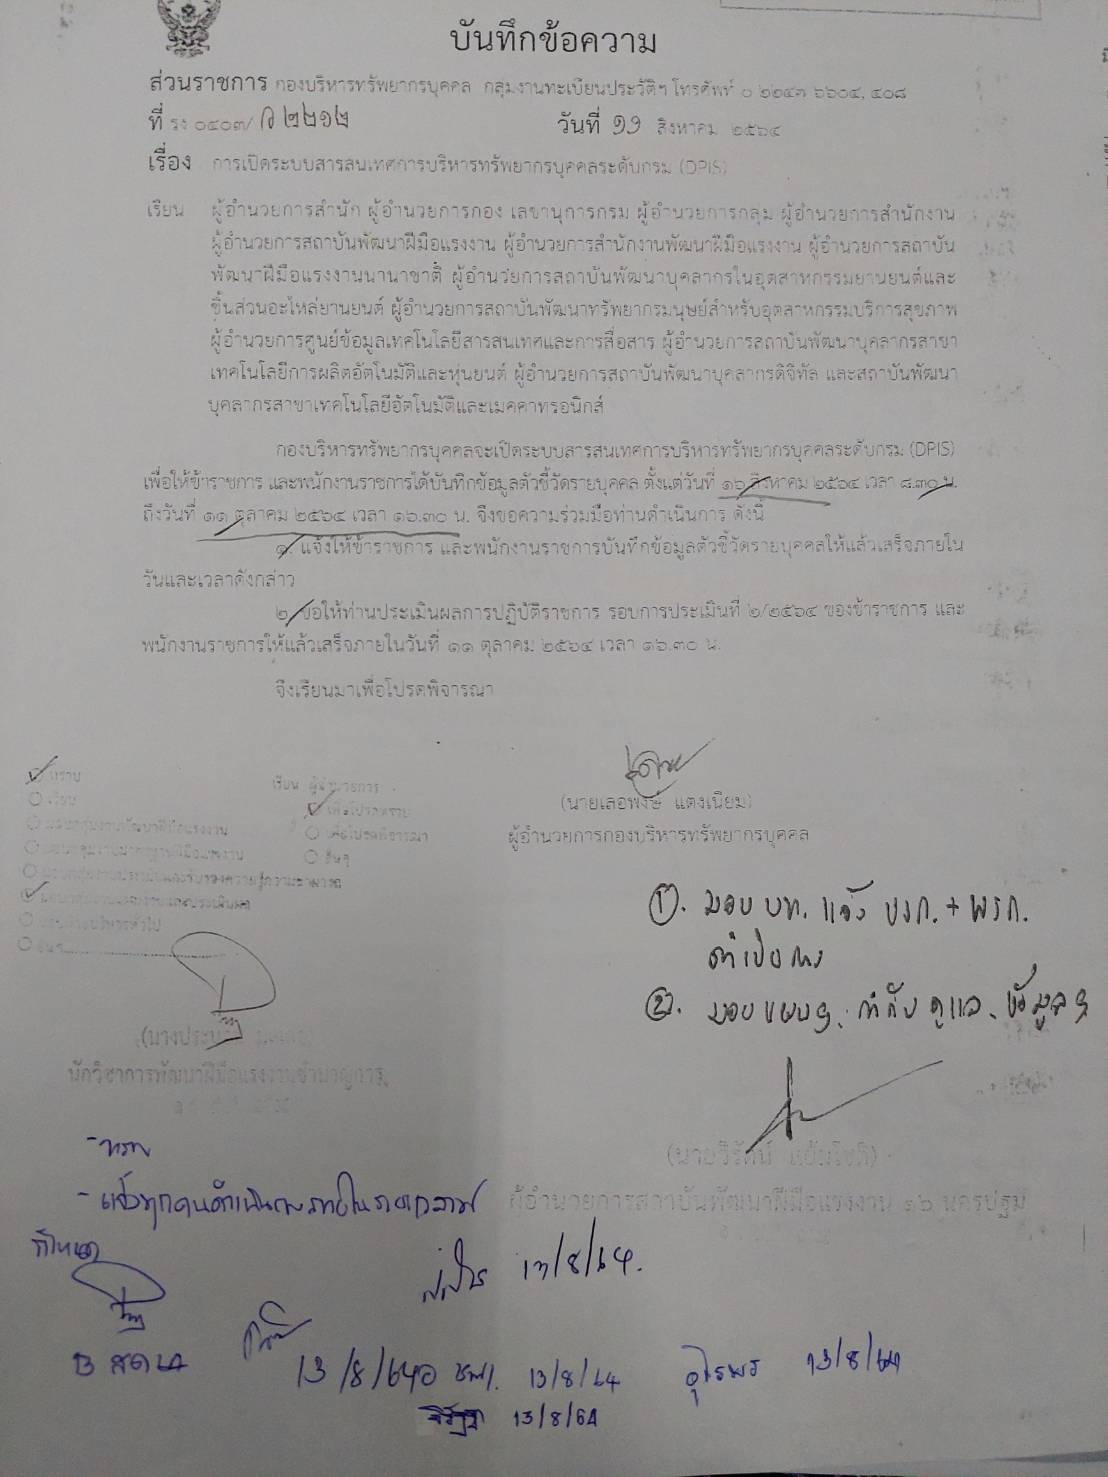 บันทึกข้อความ
ส่วนราชการ กองบริหารทรัพยากรบุคคล กลุ่มงานทะเบียนประวัติฯ โทรศัพท์ ๐ ๒๒๔๓ ๖๖๐๔, ๔๐๘
ที่ รง ๐๔๐๓/ว ๒๒๑๒ วันที่ ๑๑ สิงหาคม ๒๕๖๔
เรื่อง การเปิดระบบสารสนเทศการบริหารทรัพยากรบุคคลระดับกรม (DPIS)
เรียน ผู้อำนวยการสำนัก ผู้อำนวยการกอง เลขานุการกรม ผู้อำนวยการกลุ่ม ผู้อำนวยการสำนักงาน
ผู้อำนวยการสถาบันพัฒนาฝีมือแรงงาน ผู้อำนวยการสำนักงานพัฒนาฝีมือแรงงาน ผู้อำนวยการสถาบัน
พัฒนาฝีมือแรงงานนานาชาติ ผู้อำนวยการสถาบันพัฒนาบุคลากรในอุตสาหกรรมยานยนต์และ
ชิ้นส่วนอะไหล่ยานยนต์ ผู้อำนวยการสถาบันพัฒนาทรัพยากรมนุษย์สำหรับอุตสาหกรรมบริการสุขภาพ
ผู้อำนวยการศูนย์ข้อมูลเทคโนโลยีสารสนเทศและการสื่อสาร ผู้อำนวยการสถาบันพัฒนาบุคลากรสาขา
เทคโนโลยีการผลิตอัตโนมัติและหุ่นยนต์ ผู้อำนวยการสถาบันพัฒนาบุคลากรดิจิทัล และสถาบันพัฒนา
บุคลากรสาขาเทคโนโลยีอัตโนมัติและเมคคาทรอนิกส์
กองบริหารทรัพยากรบุคคลจะเปิดระบบสารสนเทศการบริหารทรัพยากรบุคคลระดับกรม (DPIS)
เพื่อให้ข้าราชการ และพนักงานราชการได้บันทึกข้อมูลตัวชี้วัดรายบุคคล ตั้งแต่วันที่ ๑๖ สิงหาคม ๒๕๖๔ เวลา ๘.๓๐ น.
ถึงวันที่ ๑๑ ตุลาคม ๒๕๖๔ เวลา ๑๖.๓๐ น. จึงขอความร่วมมือท่านดำเนินการ ดังนี้
๑. แจ้งให้ข้าราชการ และพนักงานราชการบันทึกข้อมูลตัวชี้วัดรายบุคคลให้แล้วเสร็จภายใน
วันและเวลาดังกล่าว
๒. ขอให้ท่านประเมินผลการปฏิบัติราชการ รอบการประเมินที่ ๒/๒๕๖๔ ของข้าราชการ และ
พนักงานราชการให้แล้วเสร็จภายในวันที่ ๑๑ ตุลาคม ๒๕๖๔ เวลา ๑๖.๓๐ น.
จึงเรียนมาเพื่อโปรดพิจารณา
(นายเลอพงษ์ แตงเนียม)
ผู้อำนวยการกองบริหารทรัพยากรบุคคล
ทราบ
เรียน ผู้อำนวยการ
เพื่อโปรดทราบ
เพื่อโปรดพิจารณา
อื่นๆ
①. มอบ บท. แจ้ง ขรก. + พรก.
ดำเนินการ
②. มอบ กำกับ ดูแล ข้อมูลฯ
นักวิชาการพัฒนาฝีมือแรงงานชำนาญการ
(นายวิรัตน์
ผู้อำนวยการสถาบันพัฒนาฝีมือแรงงาน ๑๖ นครปฐม
- ทราบ
- แจ้งทุกคนดำเนินการภายในระยะเวลาที่
กำหนด
13/8/64.
13/8/64
13/8/64
13/8/64
13/8/64